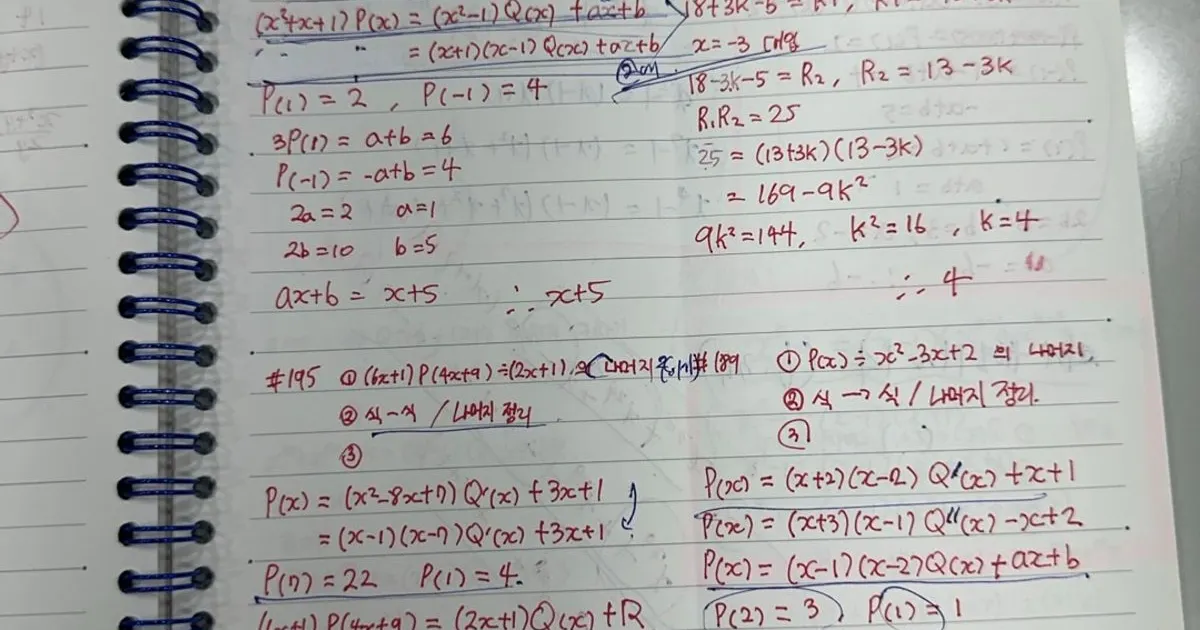 (x²+x+1) P(x) = (x²-1) Q(x) + ax+b
= (x+1)(x-1) Q(x) + ax+b
P(1) = 2 , P(-1) = 4
3P(1) = a+b = 6
P(-1) = -a+b = 4
2a=2 a=1
2b=10 b=5
ax+b = x+5 ∴ x+5
#195 ① (6x+1) P(4x+9) ÷ (2x+1) 의 나머지
② 식→식 / 나머지 정리
③
P(x) = (x²-8x+7) Q'(x) + 3x+1
= (x-1)(x-7) Q'(x) + 3x+1
P(7) = 22 P(1) = 4
(6x+1) P(4x+9) = (2x+1) Q(x) + R
18+3k-5 = R₁,
x=-3 대입
18-3k-5 = R₂, R₂ = 13-3k
R₁R₂ = 25
25 = (13+3k)(13-3k)
= 169-9k²
9k²=144, k²=16 , k=4
∴ 4
#189 ① P(x) ÷ x²-3x+2 의 나머지
② 식→식 / 나머지 정리
③
P(x) = (x+2)(x-2) Q'(x) + x+1
P(x) = (x+3)(x-1) Q''(x) -x+2
P(x) = (x-1)(x-2) Q(x) + ax+b
P(2) = 3 P(1) = 1